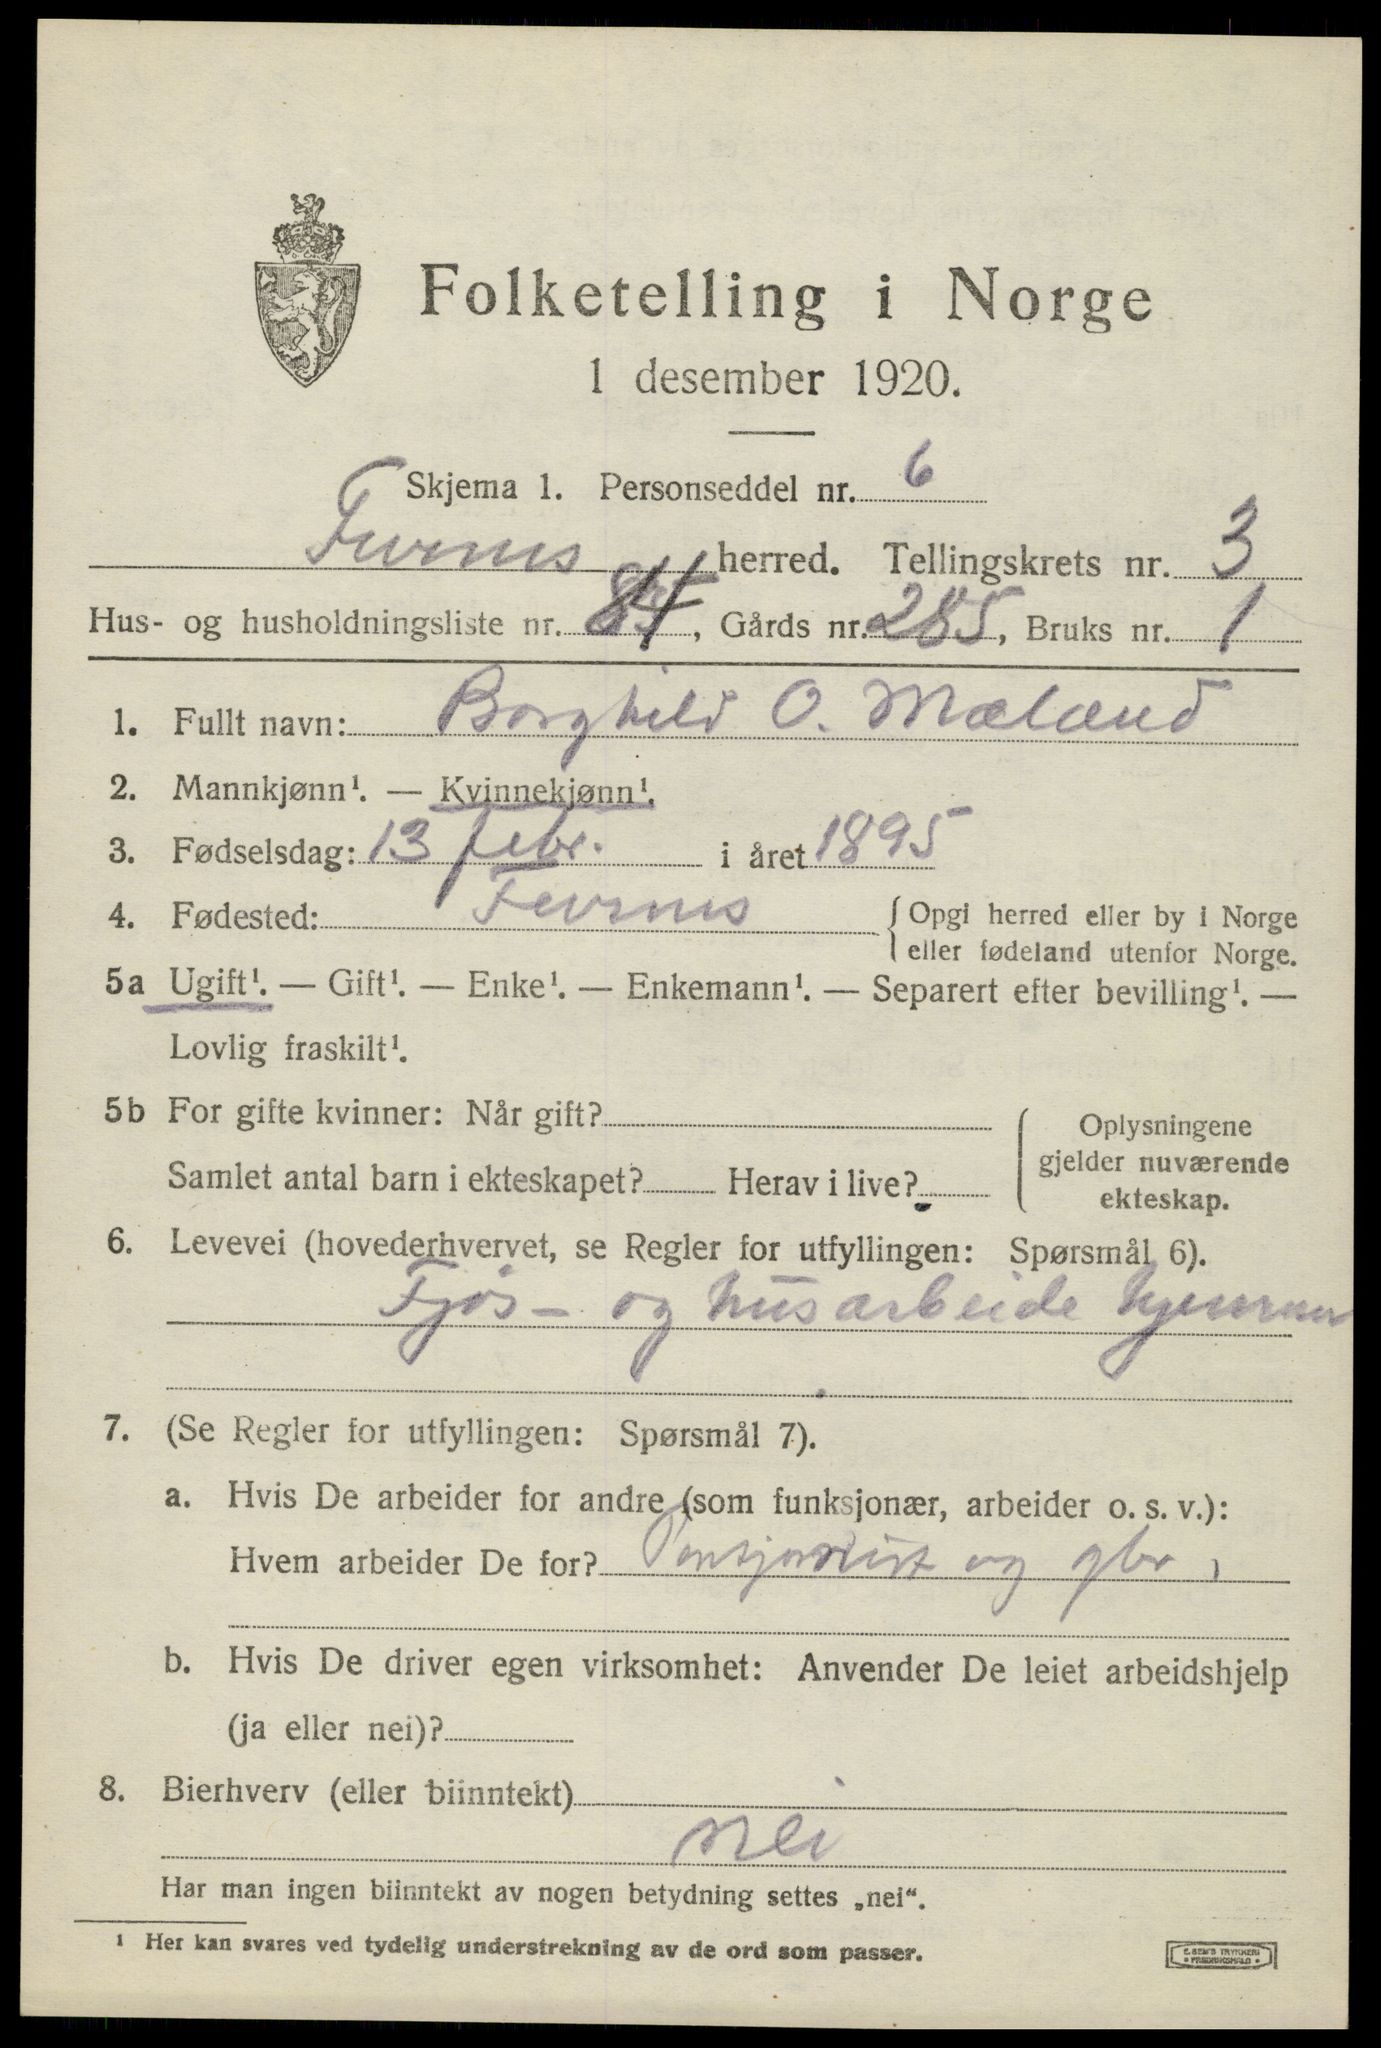 Folketelling i Norge
1 desember 1920.
Skjema 1. Personseddel nr. 6
Furnes herred. Tellingskrets nr. 3
Hus- og husholdningsliste nr. 84, Gårds nr. 285, Bruks nr. 1
1. Fullt navn: Borghild O. Mæland
2. Mannkjønn¹. — Kvinnekjønn¹.
3. Fødselsdag: 13 febr. i året 1895
4. Fødested: Furnes { Opgi herred eller by i Norge
eller fødeland utenfor Norge.
5a Ugift¹. — Gift¹. — Enke¹. — Enkemann¹. — Separert efter bevilling¹. —
Lovlig fraskilt¹.
5b For gifte kvinner: Når gift?
Samlet antal barn i ekteskapet? Herav i live?
Oplysningene
gjelder nuværende
ekteskap.
6. Levevei (hovederhvervet, se Regler for utfyllingen: Spørsmål 6).
Fjøs- og husarbeide hjemme
7. (Se Regler for utfyllingen: Spørsmål 7).
a. Hvis De arbeider for andre (som funksjonær, arbeider o. s. v.):
Hvem arbeider De for? og gbr,
b. Hvis De driver egen virksomhet: Anvender De leiet arbeidshjelp
(ja eller nei)?
8. Bierhverv (eller biinntekt)
nei
Har man ingen biinntekt av nogen betydning settes „nei“.
¹ Her kan svares ved tydelig understrekning av de ord som passer.
E. SEM'S TRYKKERI
• FREDRIKSHALD •